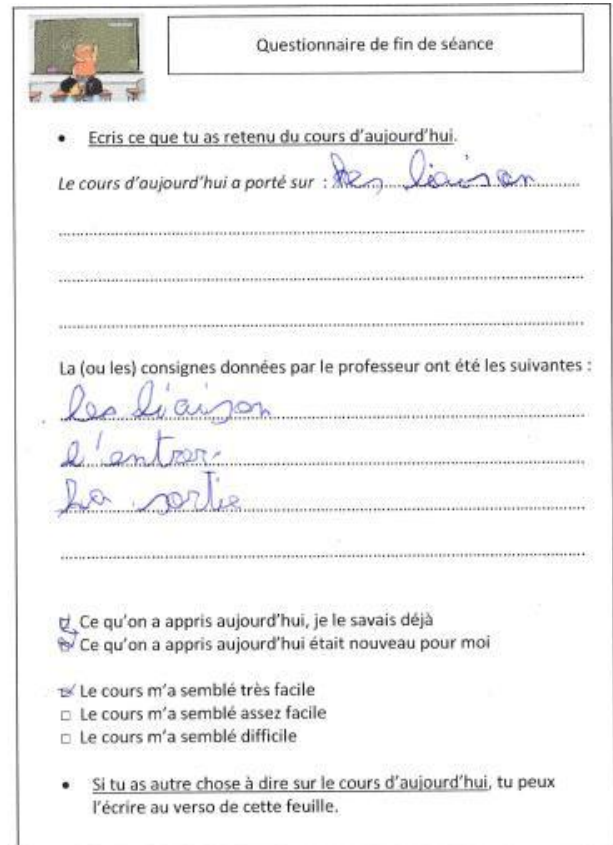 Questionnaire de fin de séance
• Ecris ce que tu as retenu du cours d'aujourd'hui.
Le cours d'aujourd'hui a porté sur : les liaison
La (ou les) consignes données par le professeur ont été les suivantes :
les liaison
l'entrer
La sortie
Ce qu'on a appris aujourd'hui, je le savais déjà
Ce qu'on a appris aujourd'hui était nouveau pour moi
Le cours m'a semblé très facile
□ Le cours m'a semblé assez facile
□ Le cours m'a semblé difficile
• Si tu as autre chose à dire sur le cours d'aujourd'hui, tu peux
l'écrire au verso de cette feuille.